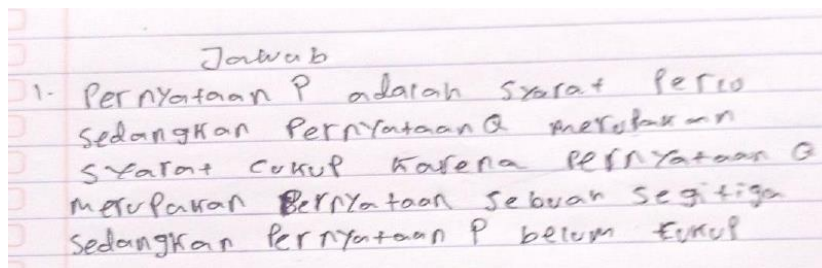 Jawab
1. Pernyataan P adalah syarat perlu
sedangkan pernyataan Q merupakan
syarat cukup karena pernyataan Q
merupakan pernyataan sebuah segitiga
sedangkan pernyataan P belum cukup